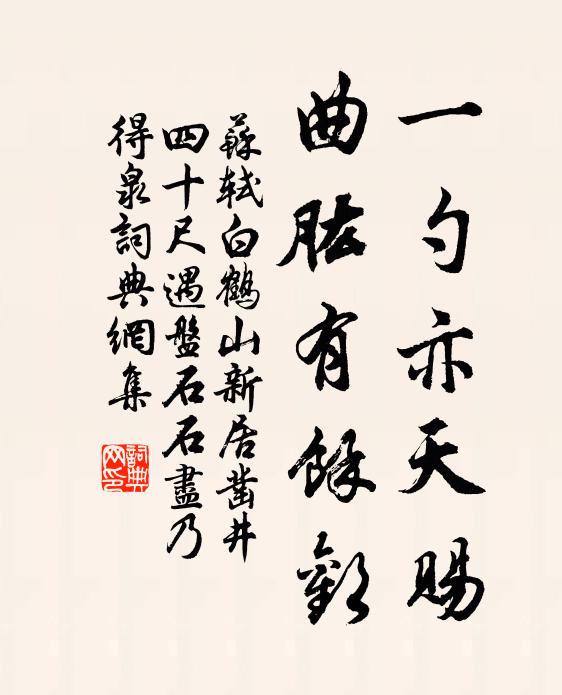 一勺亦天賜
曲肱有餘歡
蘇軾白鶴山新居鑿井
四十尺遇盤石石盡乃
得泉詞典網集
詞典
网印